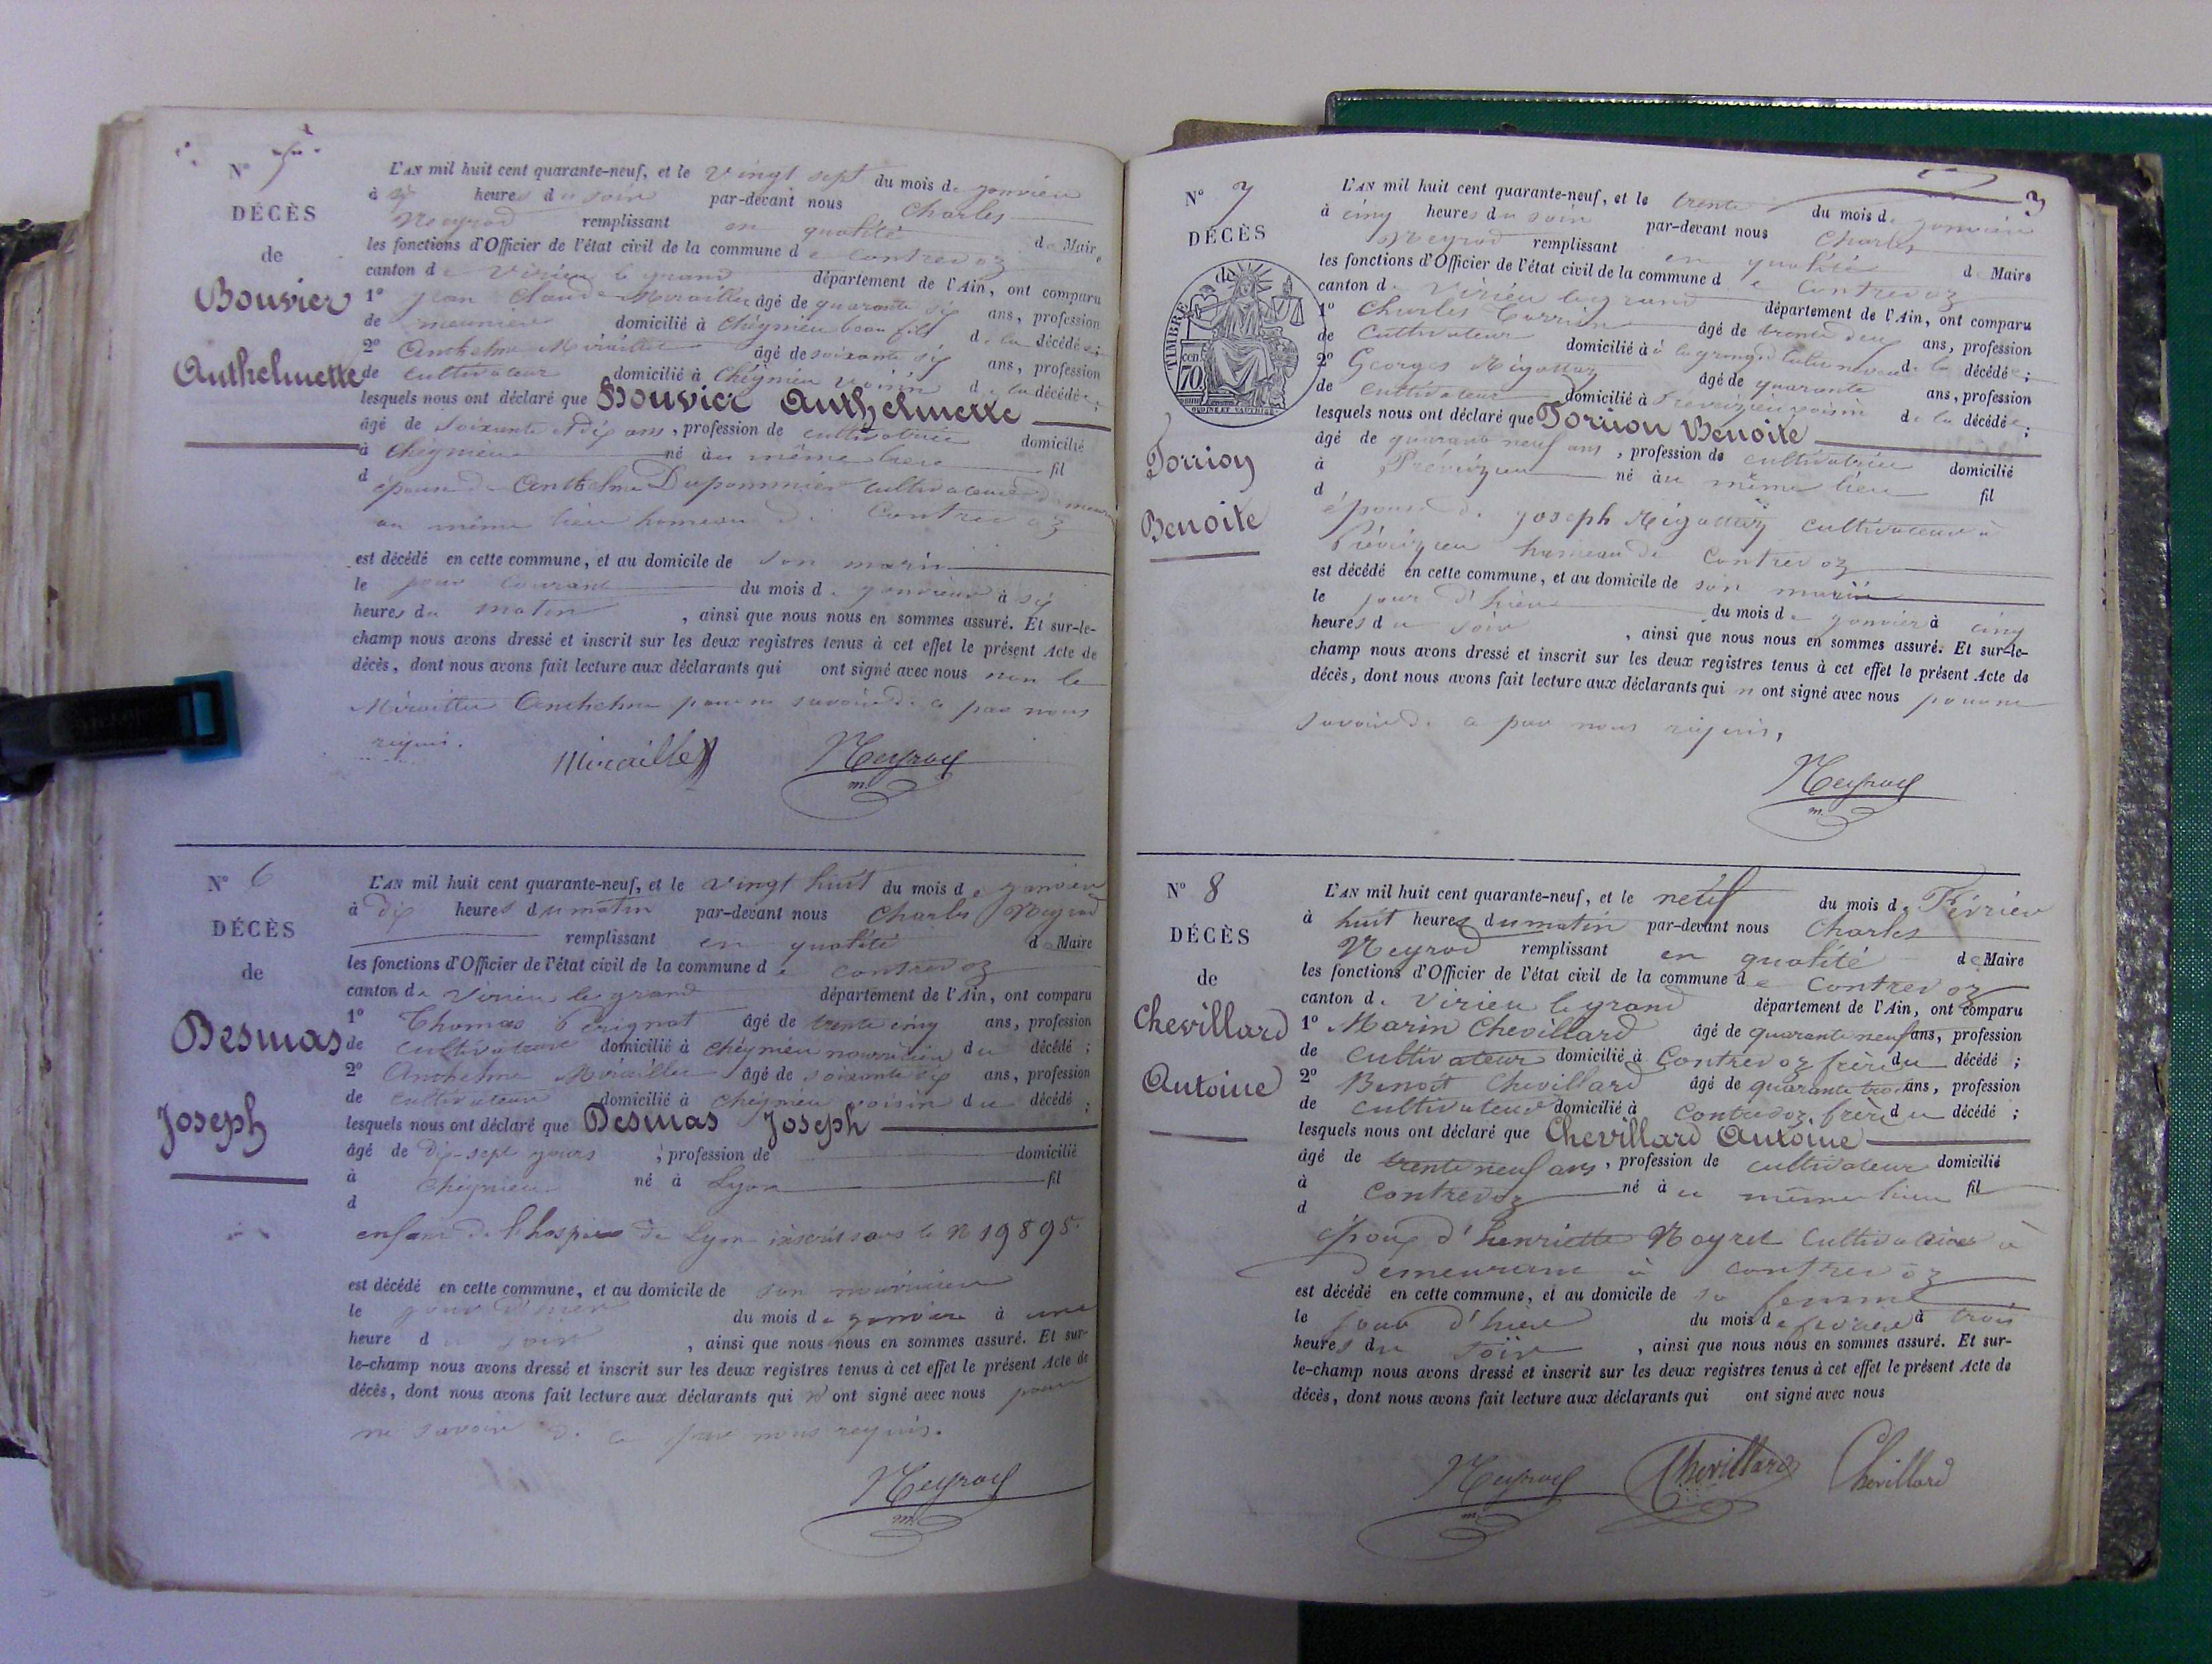 N° 5
DÉCÈS
de
Bouvier
Anthelmette
L'AN mil huit cent quarante-neuf, et le vingt sept du mois de janvier
à six heures du soir par-devant nous Charles
Neyrod remplissant en qualité de Maire
les fonctions d'Officier de l'état civil de la commune de Contrevoz
canton de Virieu le grand département de l'Ain, ont comparu
1° Jean Claude Miraillet âgé de quarante six ans, profession
de meunier domicilié à Chégnieu beau fils de la décédée;
2° Anthelme Miraillet âgé de soixante six ans, profession
de cultivateur domicilié à Chégnieu voisin de la décédée;
lesquels nous ont déclaré que Bouvier Anthelmette
âgé de soixante et dix ans, profession de cultivatrice domicilié
à Chégnieu né au même lieu fil
d
épouse de Anthelme Dupommier cultivateur
au même lieu hameau de Contrevoz
est décédé en cette commune, et au domicile de son mari
le jour courant du mois de janvier à six
heures du matin, ainsi que nous nous en sommes assuré. Et sur-le-
champ nous avons dressé et inscrit sur les deux registres tenus à cet effet le présent Acte de
décès, dont nous avons fait lecture aux déclarants qui ont signé avec nous non le
Miraillet Anthelme pour ne savoir de ce par nous
requis.
Miraillet Neyrod
m.
N° 6
DÉCÈS
de
Desmas
Joseph
L'AN mil huit cent quarante-neuf, et le vingt huit du mois de janvier
à dix heures du matin par-devant nous Charles Neyrod
remplissant en qualité de Maire
les fonctions d'Officier de l'état civil de la commune de Contrevoz
canton de Virieu le grand département de l'Ain, ont comparu
1° Thomas Perignat âgé de trente cinq ans, profession
de cultivateur domicilié à Chégnieu nourricier du décédé;
2° Anthelme Miraillet âgé de soixante six ans, profession
de cultivateur domicilié à Chégnieu voisin du décédé;
lesquels nous ont déclaré que Desmas Joseph
âgé de dix-sept jours, profession de domicilié
à Chégnieu né à Lyon fil
d
enfant de l'hospice de Lyon inscrit sous le N 19895
est décédé en cette commune, et au domicile de son nourricier
le jour d'hier du mois de janvier à une
heure du soir, ainsi que nous nous en sommes assuré. Et sur-
le-champ nous avons dressé et inscrit sur les deux registres tenus à cet effet le présent Acte de
décès, dont nous avons fait lecture aux déclarants qui n'ont signé avec nous pour
ne savoir de ce par nous requis.
Neyrod
m.
3
N° 7
DÉCÈS
de
TIMBRE
70 cen
Torrion
Benoite
L'AN mil huit cent quarante-neuf, et le trente du mois de janvier
à cinq heures du soir par-devant nous Charles
Neyrod remplissant en qualité de Maire
les fonctions d'Officier de l'état civil de la commune de Contrevoz
canton de Virieu le grand département de l'Ain, ont comparu
1° Charles Torrion âgé de trente deux ans, profession
de cultivateur domicilié à neveu de la décédée;
2° Georges Rigottaz âgé de quarante ans, profession
de cultivateur domicilié à Preveyzieu voisin de la décédée;
lesquels nous ont déclaré que Torrion Benoite
âgé de quarante neuf ans, profession de cultivatrice domicilié
à Préveyzieu né au même lieu fil
d
épouse de Joseph Rigottaz cultivateur à
Préveyzieu hameau de Contrevoz
est décédé en cette commune, et au domicile de son mari
le jour d'hier du mois de janvier à cinq
heures du soir, ainsi que nous nous en sommes assuré. Et sur-le-
champ nous avons dressé et inscrit sur les deux registres tenus à cet effet le présent Acte de
décès, dont nous avons fait lecture aux déclarants qui n'ont signé avec nous pour ne
savoir de ce par nous requis,
Neyrod
m.
N° 8
DÉCÈS
de
Chevillard
Antoine
L'AN mil huit cent quarante-neuf, et le neuf du mois de Février
à huit heures du matin par-devant nous Charles
Neyrod remplissant en qualité de Maire
les fonctions d'Officier de l'état civil de la commune de Contrevoz
canton de Virieu le grand département de l'Ain, ont comparu
1° Marin Chevillard âgé de quarante neuf ans, profession
de cultivateur domicilié à Contrevoz frère du décédé;
2° Benoit Chevillard âgé de quarante trois ans, profession
de cultivateur domicilié à Contrevoz frère du décédé;
lesquels nous ont déclaré que Chevillard Antoine
âgé de trente neuf ans, profession de cultivateur domicilié
à Contrevoz né au même lieu fil
d
époux d'henriette Neyret cultivatrice à
demeurant à Contrevoz
est décédé en cette commune, et au domicile de sa femme
le jour d'hier du mois de février à trois
heures du soir, ainsi que nous nous en sommes assuré. Et sur-
le-champ nous avons dressé et inscrit sur les deux registres tenus à cet effet le présent Acte de
décès, dont nous avons fait lecture aux déclarants qui ont signé avec nous
Neyrod Chevillard Chevillard
m.